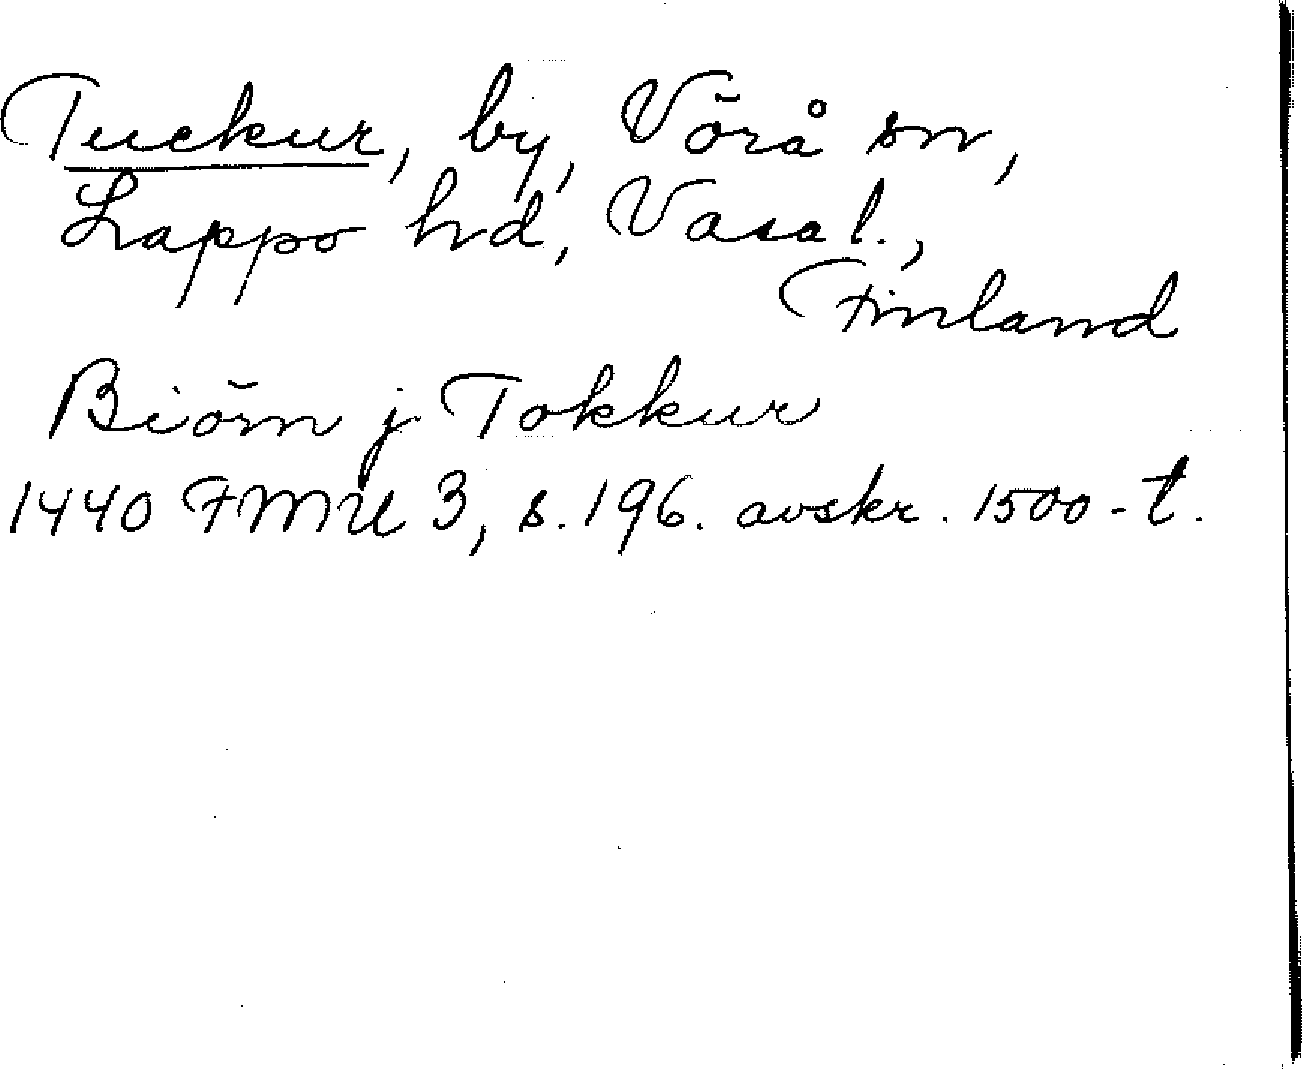 Tuckur, by, Vörå sn,
Lappo hd, Vasa l.,
Finland
Biörn j Tokkur
1440 FMU 3, s. 196. avskr. 1500-t.